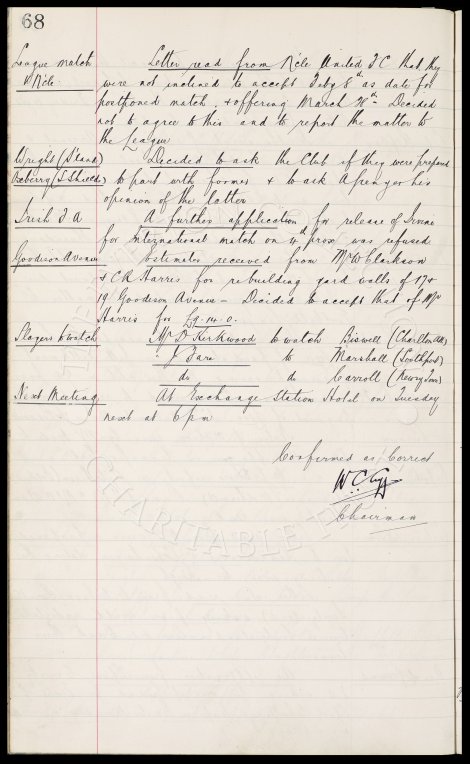 68
League match Letter read from N'cle United F C that they
v N'cle. were not inclined to accept Feby 8th as date for
postponed match. & offering March Decided
not to agree to this and to report the matter to
the League
Wright (S'land) Decided to ask the Club if they were prepared
(S. Shields) to part with former & to ask A for his
opinion of the latter
Irish F A A further application for release of Irvine
for International match on 4th prox. was refused
Goodison Avenue Estimates received from Mr W Clarkson
& C R Harris for rebuilding yard walls of 17 &
19 Goodison Avenue - Decided to accept that of Mr
Harris for £9.14.0.
Players to watch Mr D. Kirkwood to watch Biswell (Charlton Ath)
" J Fare to Marshall (Southport)
do do Carroll (Newry Town)
Next Meeting At Exchange Station Hotel on Tuesday
next at 6 pm
Confirmed as Correct
W.C. Cuff
Chairman
CHARITABLE